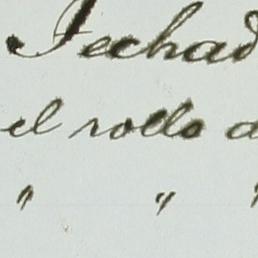 Fechad
el rollo d
" " "